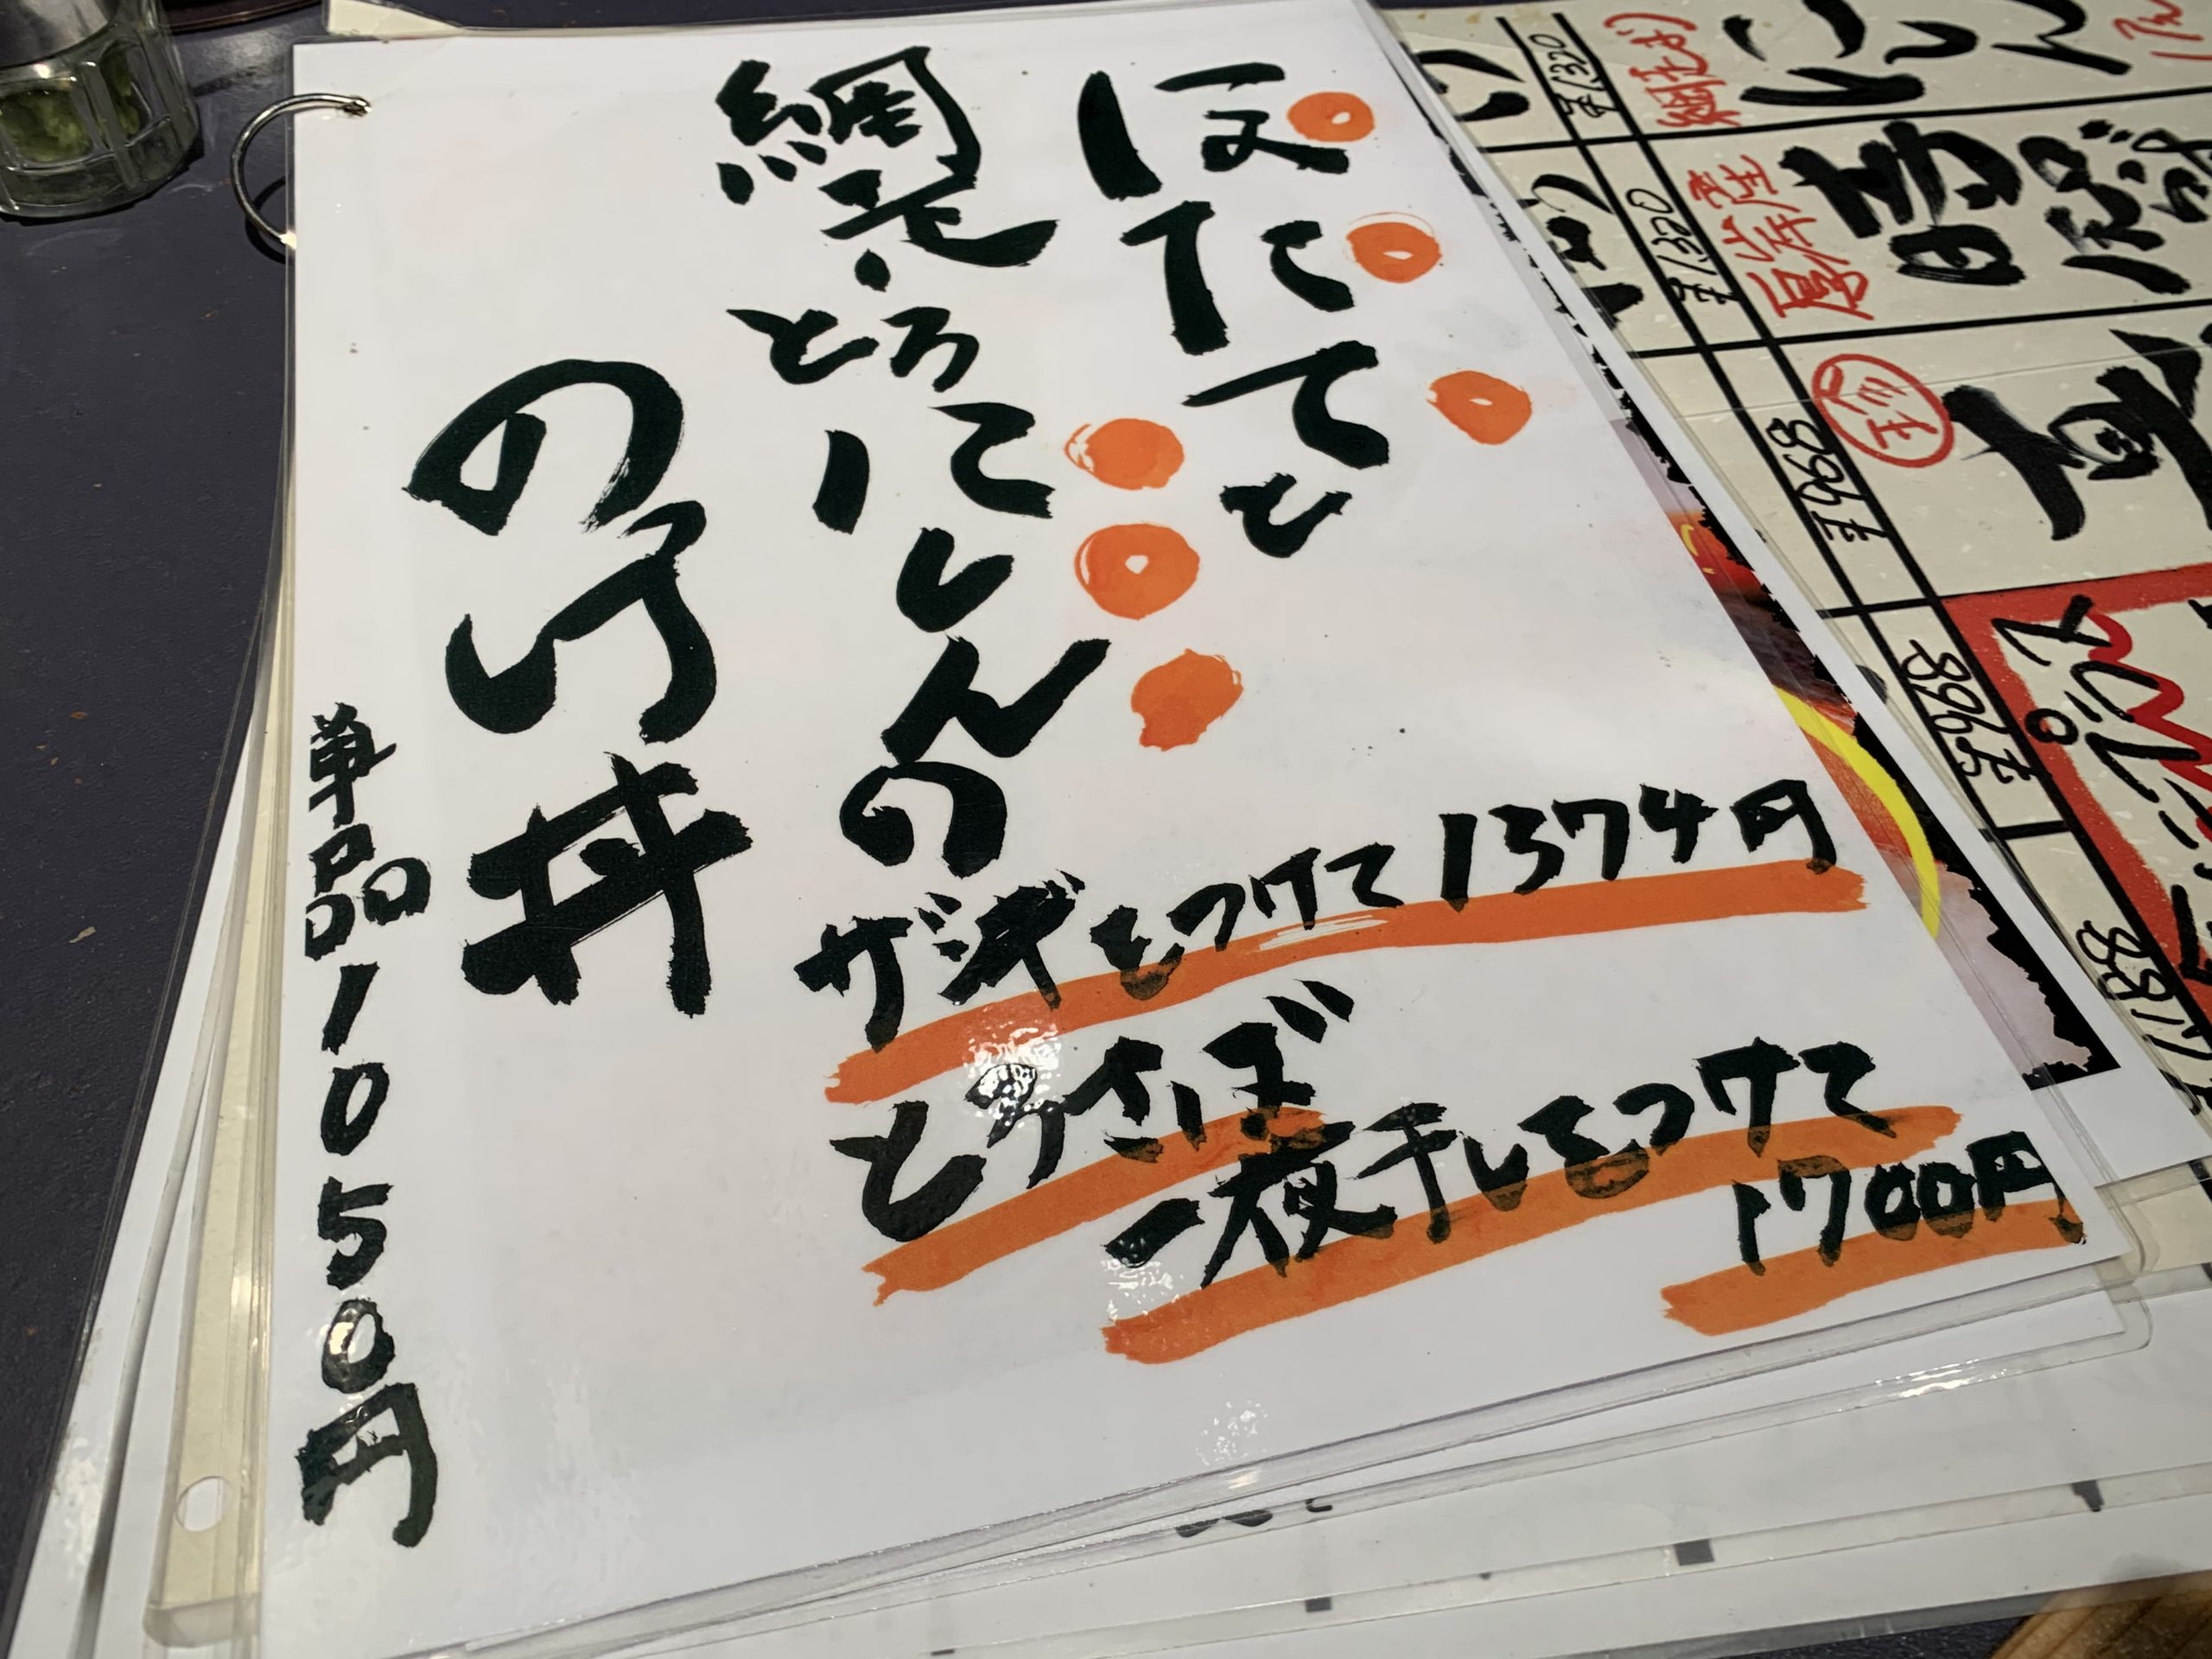 ほたてと
網走・とろにしんの
のっけ丼
単品1050円
ザンギをつけて1374円
とろさば
一夜干しをつけて
1700円
¥1320
¥1,320
厚岸産
¥968
¥968
¥1188